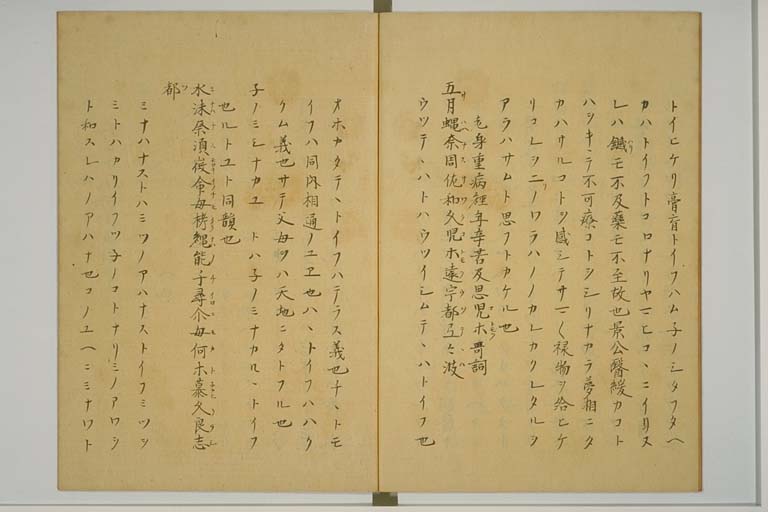 トイヒケリ膏肓トイフハム子ノシタフタヘ
カハトイフトコロナリヤマヒコヽニイリヌ
レハ鍼モ不及藥モ不至故也景公醫緩カコト
ハシキヽテ不可療コトヲシリナカラ夢相ニタ
カハサルコトヲ感シテサマ〱禄物ヲ給ヒケ
リコレヲニノワラハノカレカクレタルヲ
アラハサムト思フトカケル也
老身重病經年辛苦及思児ホ哥詞
五月蠅奈周佐和久児ホ遠宇都弖ヽ波
ウツテヽハトハウツイシムテヽハトイフ也
オホカタテヽトイフハテラス義也チヽトモ
イフハ同内相通ノユヱ也ハヽトイフハハク
クム義也サテ父母ヲハ天地ニタトフル也
子ノミシナカユ トハ子ノミナカルヽトイフ
也ルトユト同韻也
水沫奈須微命母栲縄能千尋尒母何ホ慕久良志
都
ミナハナストハミツノアハナストイフミツヲ
ミトハカリイフツ子ノコトナリミノアワヲ
ト和スレハノアハナ也コノユヘニミナワト